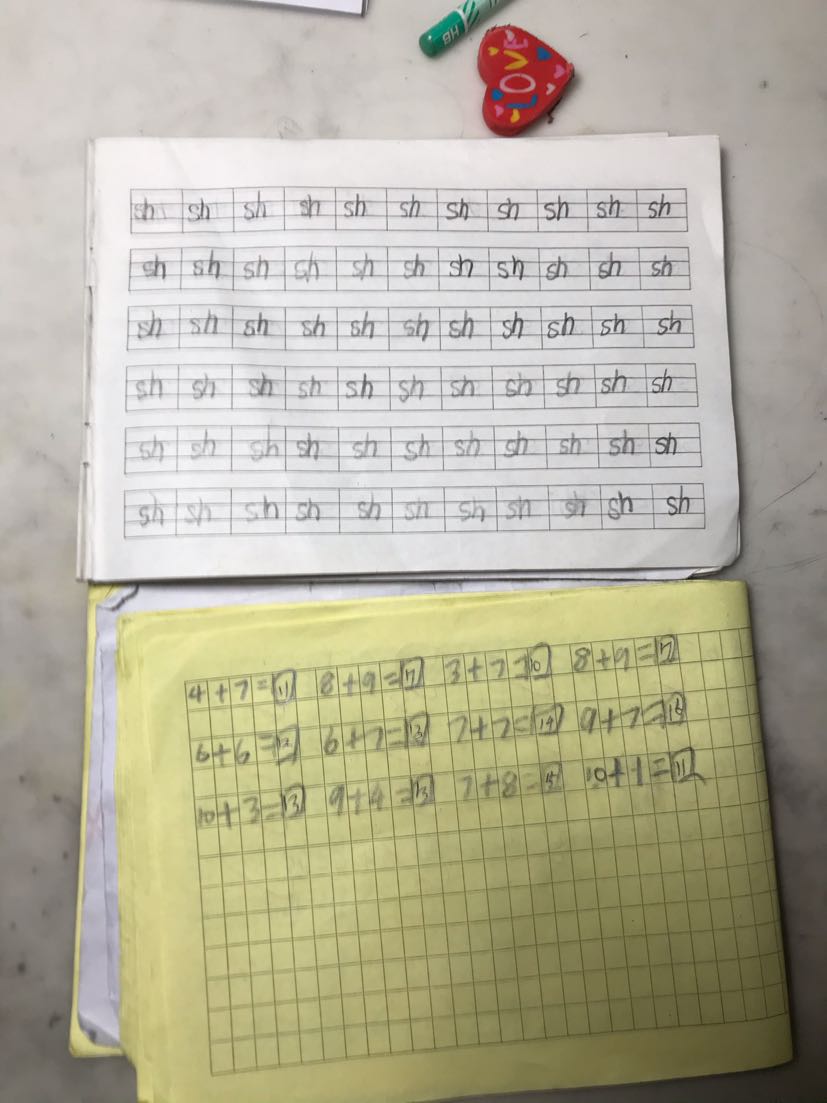 HB
LOVE
sh sh sh sh sh sh sh sh sh sh sh
sh sh sh sh sh sh sh sh sh sh sh
sh sh sh sh sh sh sh sh sh sh sh
sh sh sh sh sh sh sh sh sh sh sh
sh sh sh sh sh sh sh sh sh sh sh
sh sh sh sh sh sh sh sh sh sh sh
4+7=11 8+9=17 3+7=10 8+9=17
6+6=12 6+7=13 7+7=14 9+7=16
10+3=13 9+4=13 7+8=15 10+1=11